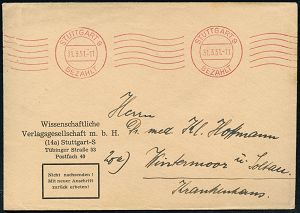 STUTTGART 9
31.3.51.-11
BEZAHLT
STUTTGART 9
31.3.51.-11
BEZAHLT
Wissenschaftliche
Verlagsgesellschaft m. b. H.
(14a) Stuttgart-S
Tübinger Straße 53
Postfach 40
Nicht nachsenden!
Mit neuer Anschrift
zurück erbeten!
Herrn
Dr. med Kl. Hoffmann
20a) Wintermoor ü. Soltau
Krankenhaus.